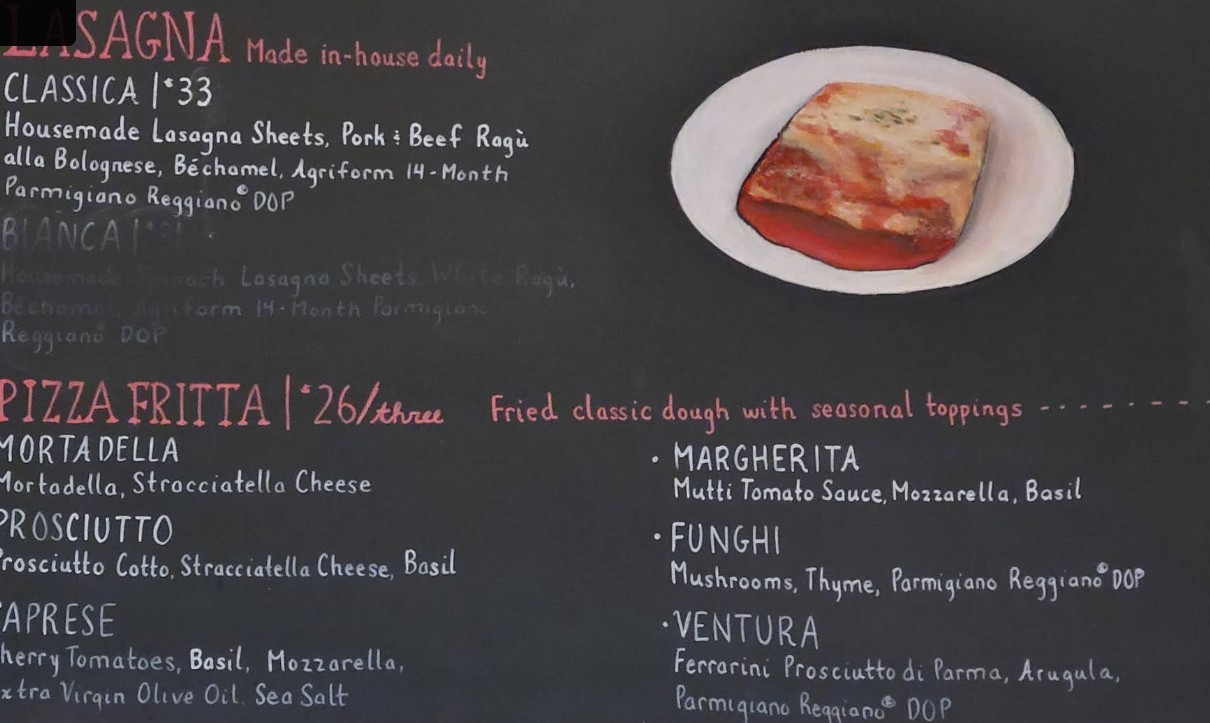 LASAGNA Made in-house daily
CLASSICA | $33
Housemade Lasagna Sheets, Pork & Beef Ragù
alla Bolognese, Béchamel, Agriform 14-Month
Parmigiano Reggiano® DOP
BIANCA | $31
Housemade Spinach Lasagna Sheets, White Ragù,
Béchamel, Agriform 14-Month Parmigiano
Reggiano® DOP
PIZZA FRITTA | $26/three Fried classic dough with seasonal toppings
MORTADELLA
Mortadella, Stracciatella Cheese
PROSCIUTTO
Prosciutto Cotto, Stracciatella Cheese, Basil
APRESE
herry Tomatoes, Basil, Mozzarella,
xtra Virgin Olive Oil, Sea Salt
· MARGHERITA
Mutti Tomato Sauce, Mozzarella, Basil
· FUNGHI
Mushrooms, Thyme, Parmigiano Reggiano® DOP
· VENTURA
Ferrarini Prosciutto di Parma, Arugula,
Parmigiano Reggiano® DOP